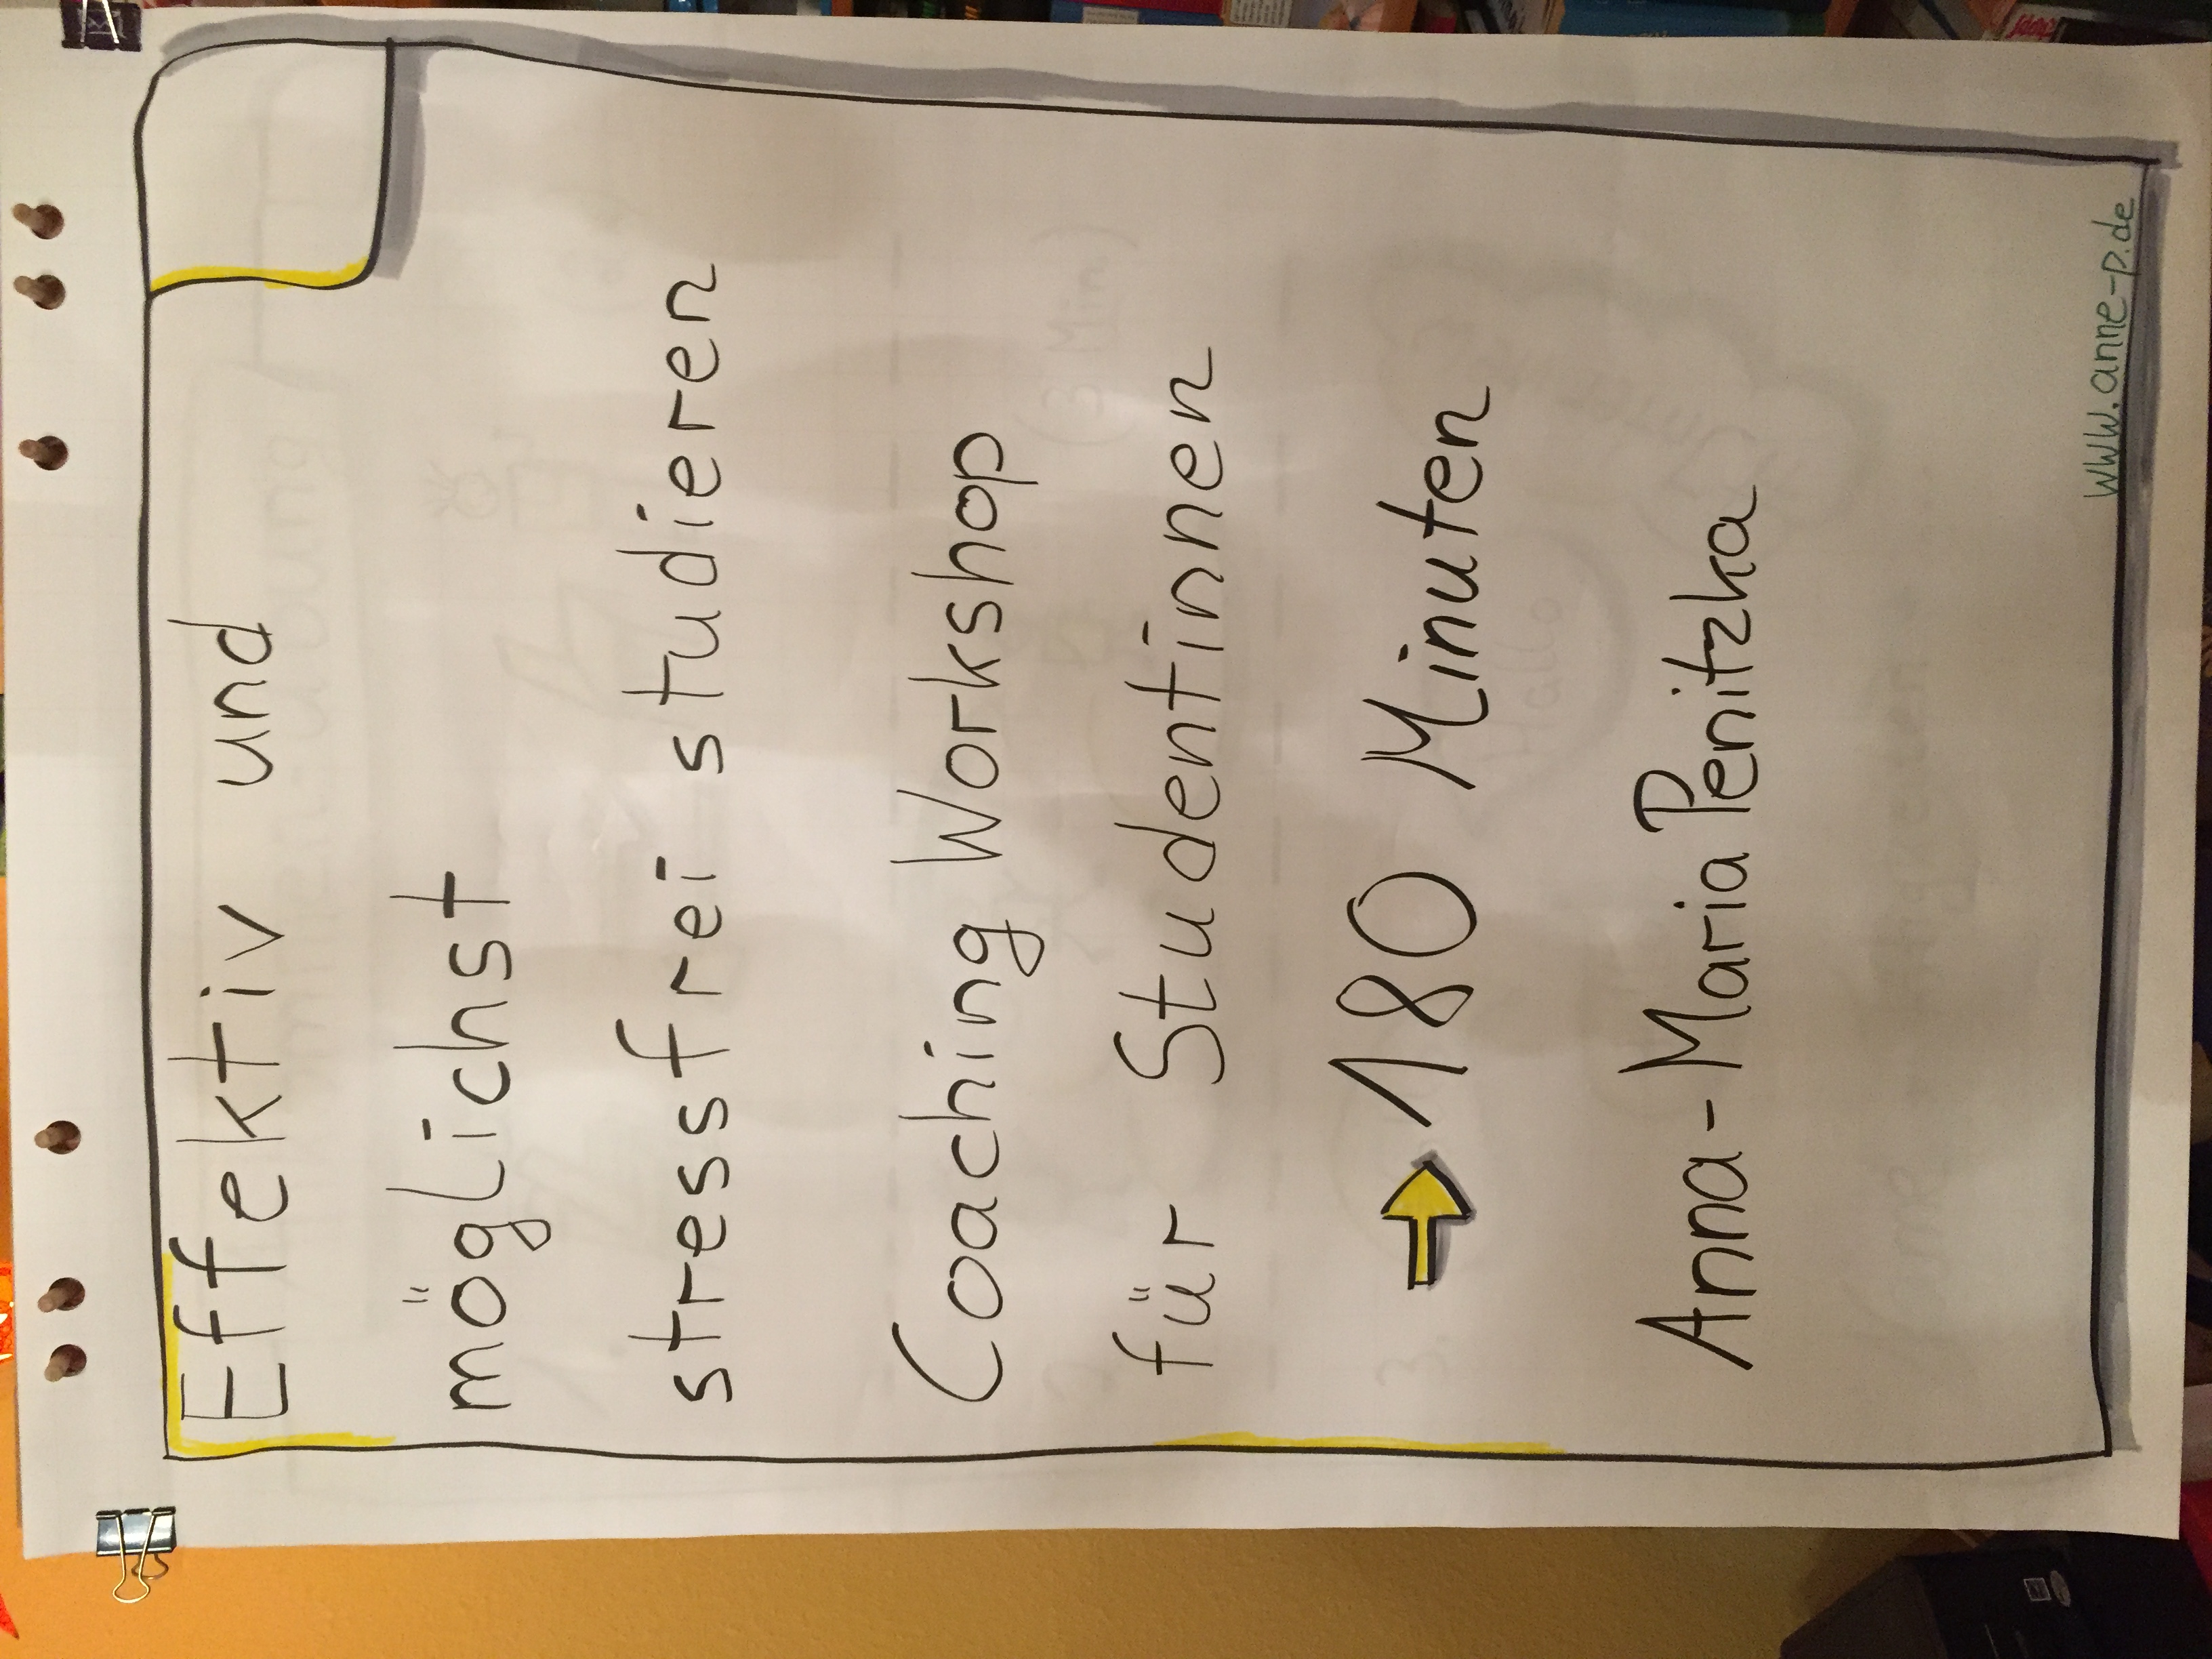 Effektiv und
möglichst
stressfrei studieren
Coaching Workshop
für Studentinnen
180 Minuten
Anna-Maria Penitzka
www.anne-p.de